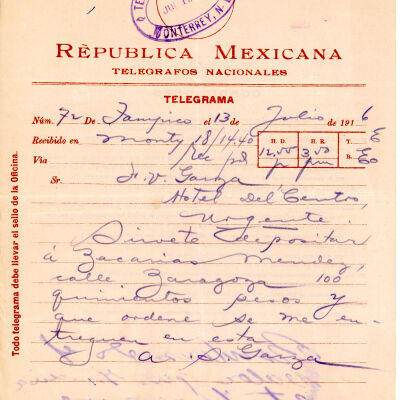 MONTERREY, N. L.
REPUBLICA MEXICANA
TELEGRAFOS NACIONALES
TELEGRAMA
Núm. 72 De Tampico el 13 de Julio de 1916
Recibido en Monty 18/14.40 H. D. H. R. T. E
Via Rec pd 12.00 3.00 B. Eo
pm
Sr. F. V. Garza
Hotel del Centro,
Urgente
Sirvete depositar
á Zacarias Mendez,
calle Zaragoza 100
quinientos pesos y
que ordene se me en-
treguen en esta
A. S. Garza
Todo telegrama debe llevar el sello de la Oficina.